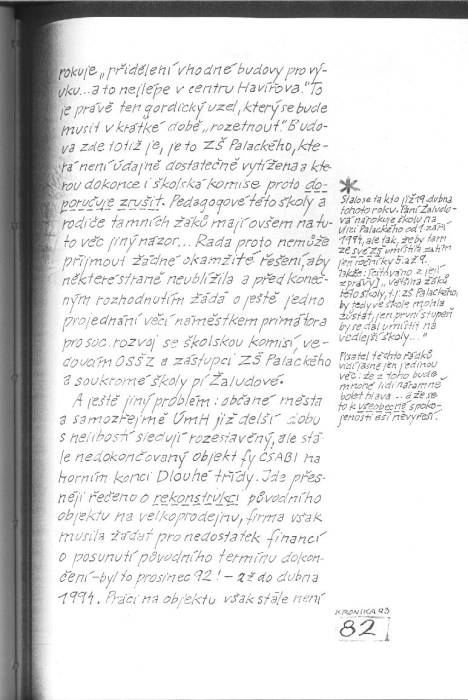 rokuje „přidělení vhodné budovy pro vý-
uku...a to nejlépe v centru Havířova." To
je právě ten gordický uzel, který se bude
muset v krátké době „rozetnout". Budo-
va zde totiž je, je to ZŠ Palackého, kte-
rá není údajně dostatečně vytížena a kte-
rou dokonce i školská komise proto do-
poručuje zrušit. Pedagogové této školy a
rodiče tamních žáků mají ovšem na tu-
to věc jiný názor... Rada proto nemůže
přijmout žádné okamžité řešení, aby
některé straně neublížila a před koneč-
ným rozhodnutím žádá o ještě jedno
projednání věci náměstkem primátora
pro soc. rozvoj se školskou komisí, ve-
doucím OSŠZ a zástupci ZŠ Palackého
a soukromé školy pí Žaludové.
A ještě jiný problém: občané města
a samozřejmě ÚmH již delší dobu
s nelibostí sledují rozestavěný, ale stá-
le nedokončovaný objekt fy ČSABI na
horním konci Dlouhé třídy. Jde přes-
něji řečeno o rekonstrukci původního
objektu na velkoprodejnu, firma však
musila žádat pro nedostatek financí
o posunutí původního termínu dokon-
čení – byl to prosinec 92! – až do dubna
1994. Práci na objektu však stále není
*
Stalo se tak to již 19. dubna
tohoto roku. Paní Žaludo-
vá nárokuje školu na
ulici Palackého od 1. září
1994, ale tak, že by tam
ze své ZŠ umístila zatím
jen ročníky 5. a 9.
Takže: (citováno z její
zprávy) „většina žáků
této školy, t.j. ZŠ Palackého,
by tedy ve škole mohla
zůstat, jen první stupeň
by se dal umístit na
vedlejší školy..."
Pisatel těchto řádků
vidí jasně jen jedinou
věc: že z toho bude
mnohé lidi náramně
bolet hlava... a že se
to k všeobecné spoko-
jenosti asi nevyřeší.
KRONIKA 93
82